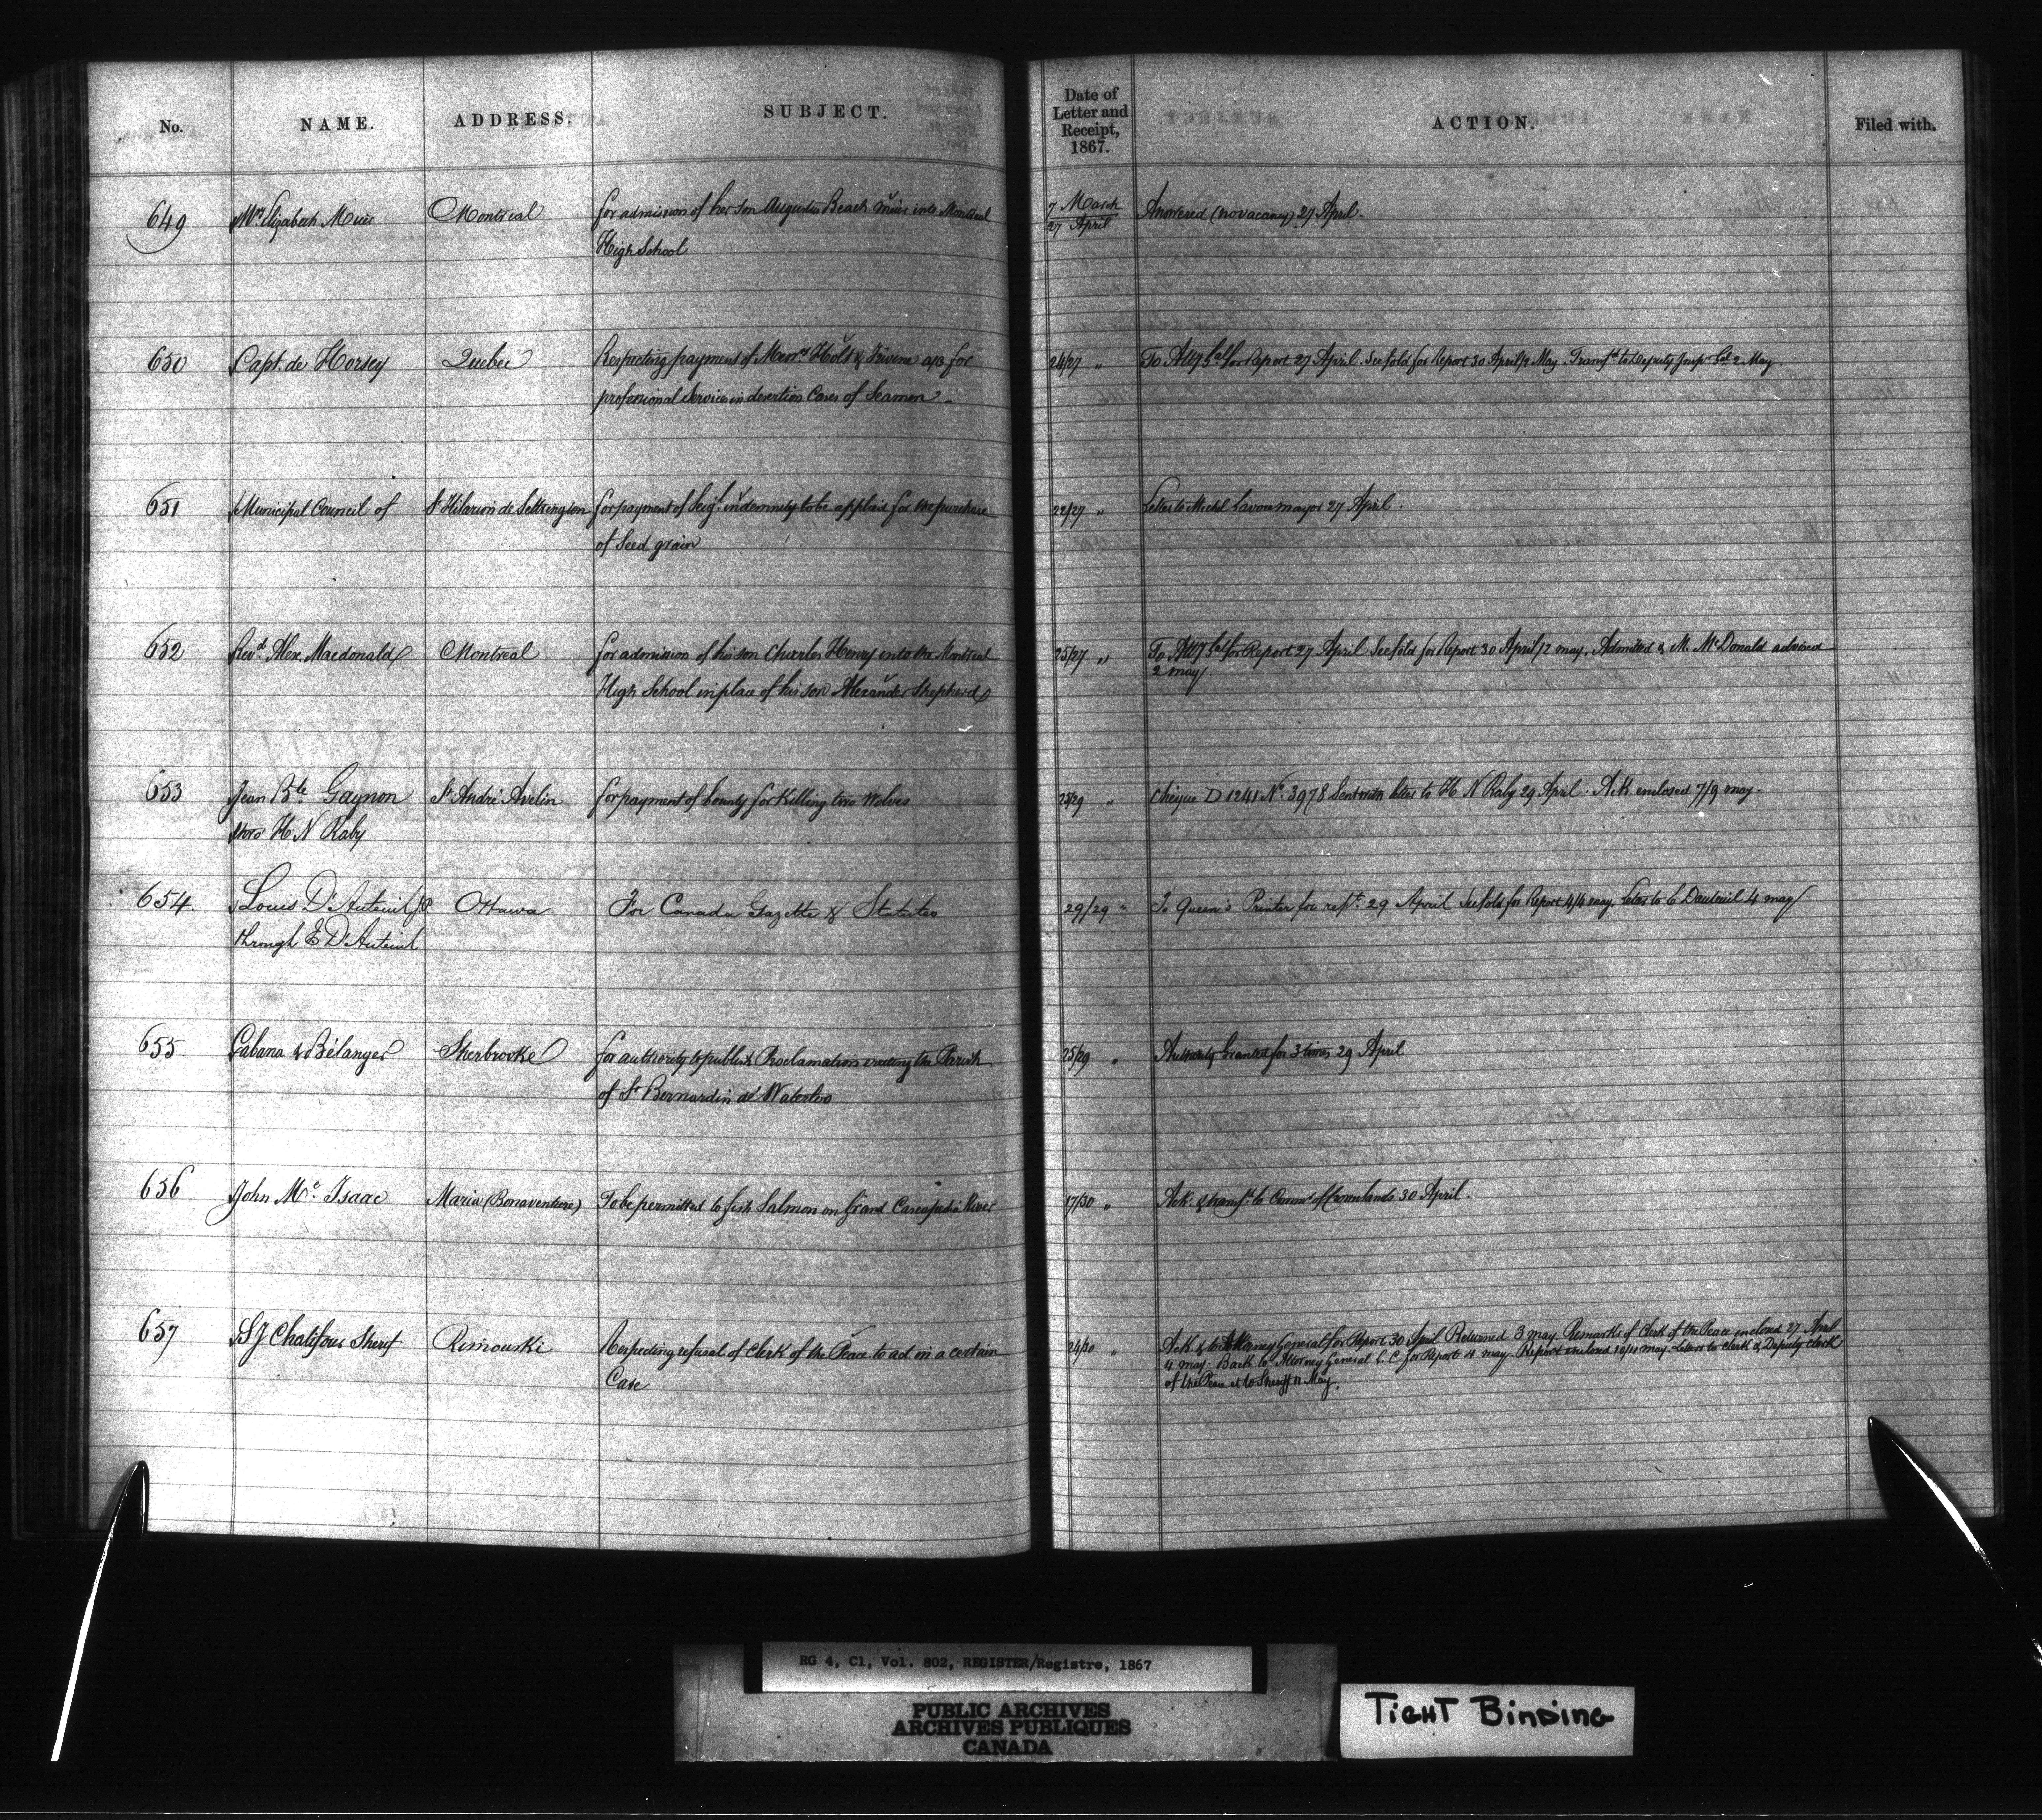 No. NAME. ADDRESS. SUBJECT. Date of Letter and Receipt, 1867. ACTION. Filed with.
649 Mrs Elizabeth Muir Montreal for admission of her son Augustus Beach Muir into Montreal 7 March Answered (no vacancy) 27 April.
High School 27 April
650 Capt. de Horsey Quebec Respecting payment of Messrs Holt & Irvine a/c for 24/27 " To Atty Gal for Report 27 April. See fold for Report 30 April/2 May. Transfd to Deputy Insp. Gal 2 May.
professional Services in desertion Cases of Seamen.
651 Municipal Council of St Hilarion de Settrington for payment of Seigl. indemnity to be applied for the purchase 22/27 " Letter to Michel Savou mayor 27 April.
of Seed grain
652 Revd. Alex. Macdonald Montreal for admission of his son Charles Henry into the Montreal 25/27 " To Atty Gal for Report 27 April See fold for Report 30 April/2 may. Admitted & M. McDonald advised
High School in place of his son Alexander Shepherd 2 may
653 Jean Bte. Gaynon St André Avelin for payment of bounty for killing two Wolves 25/29 " Cheque D 1241 No. 3978 Sent with letter to H N Raby 29 April. Ack enclosed 7/9 may.
thro' H. N Raby
654. Louis D'Auteuil JP Ottawa For Canada Gazette & Statutes 29/29 " To Queen's Printer for rept. 29 April See fold for Report 4/4 may. Letter to E Dauteuil 4 may
through E D'Auteuil
655 Cabana & Bélanger Sherbrooke for authority to publish Proclamation erecting the Parish 25/29 " Authority Granted for 3 times 29 April
of St Bernardin de Waterloo
656 John Mc. Isaac Maria (Bonaventure) To be permitted to fish Salmon on Grand Cascapedia River 17/30 " Ack. & transfd. to Commr of Crownlands 30 April.
657 S J Chalifour Sherif Rimouski Respecting refusal of Clerk of the Peace to act in a certain 24/30 " Ack. & to Attorney General for Report 30 April Returned 3 may Remarks of Clerk of the Peace enclosed 27 April
Case 4 may. Back to Attorney General L. C. for Report 4 may. Report enclosed 10/11 may. Letters to Clerk & Deputy Clerk
of the Peace & to Sheriff 11 May.
RG 4, C1, Vol. 802, REGISTER/Registre, 1867
PUBLIC ARCHIVES
ARCHIVES PUBLIQUES
CANADA
TIGHT BINDING